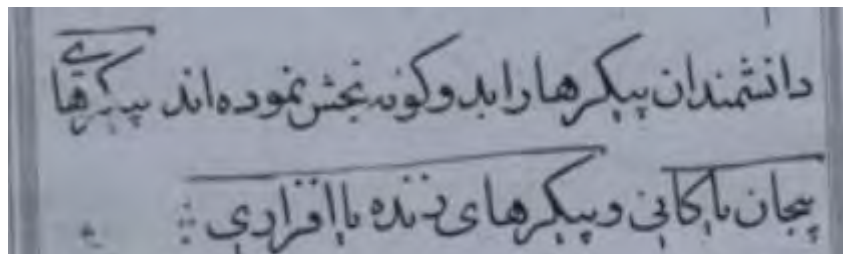 دانشمندان پیکرها را بدوگونه بخش نموده‌اند پیکرهای
بیجان یا کانی و پیکرهای زنده یا افزاری :